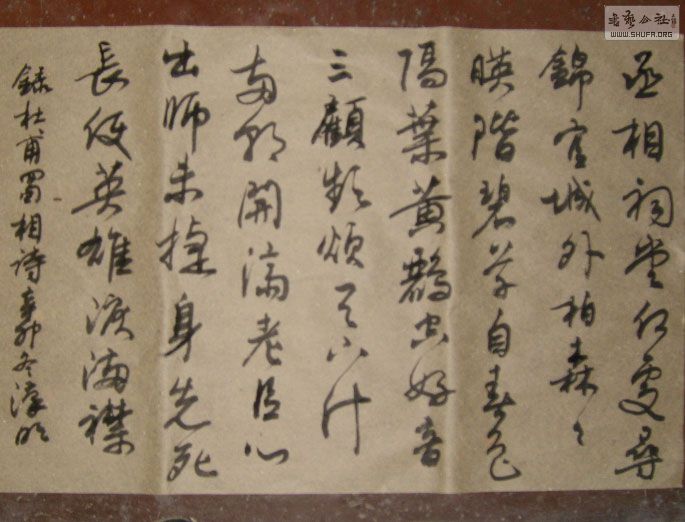 書藝公社
WWW.SHUFA.ORG
丞相祠堂何處尋
錦官城外柏森々
暎階碧草自春色
隔葉黄鸝空好音
三顧頻煩天下計
兩朝開濟老臣心
出師未捷身先死
長使英雄淚滿襟
錄杜甫蜀相詩辛卯冬